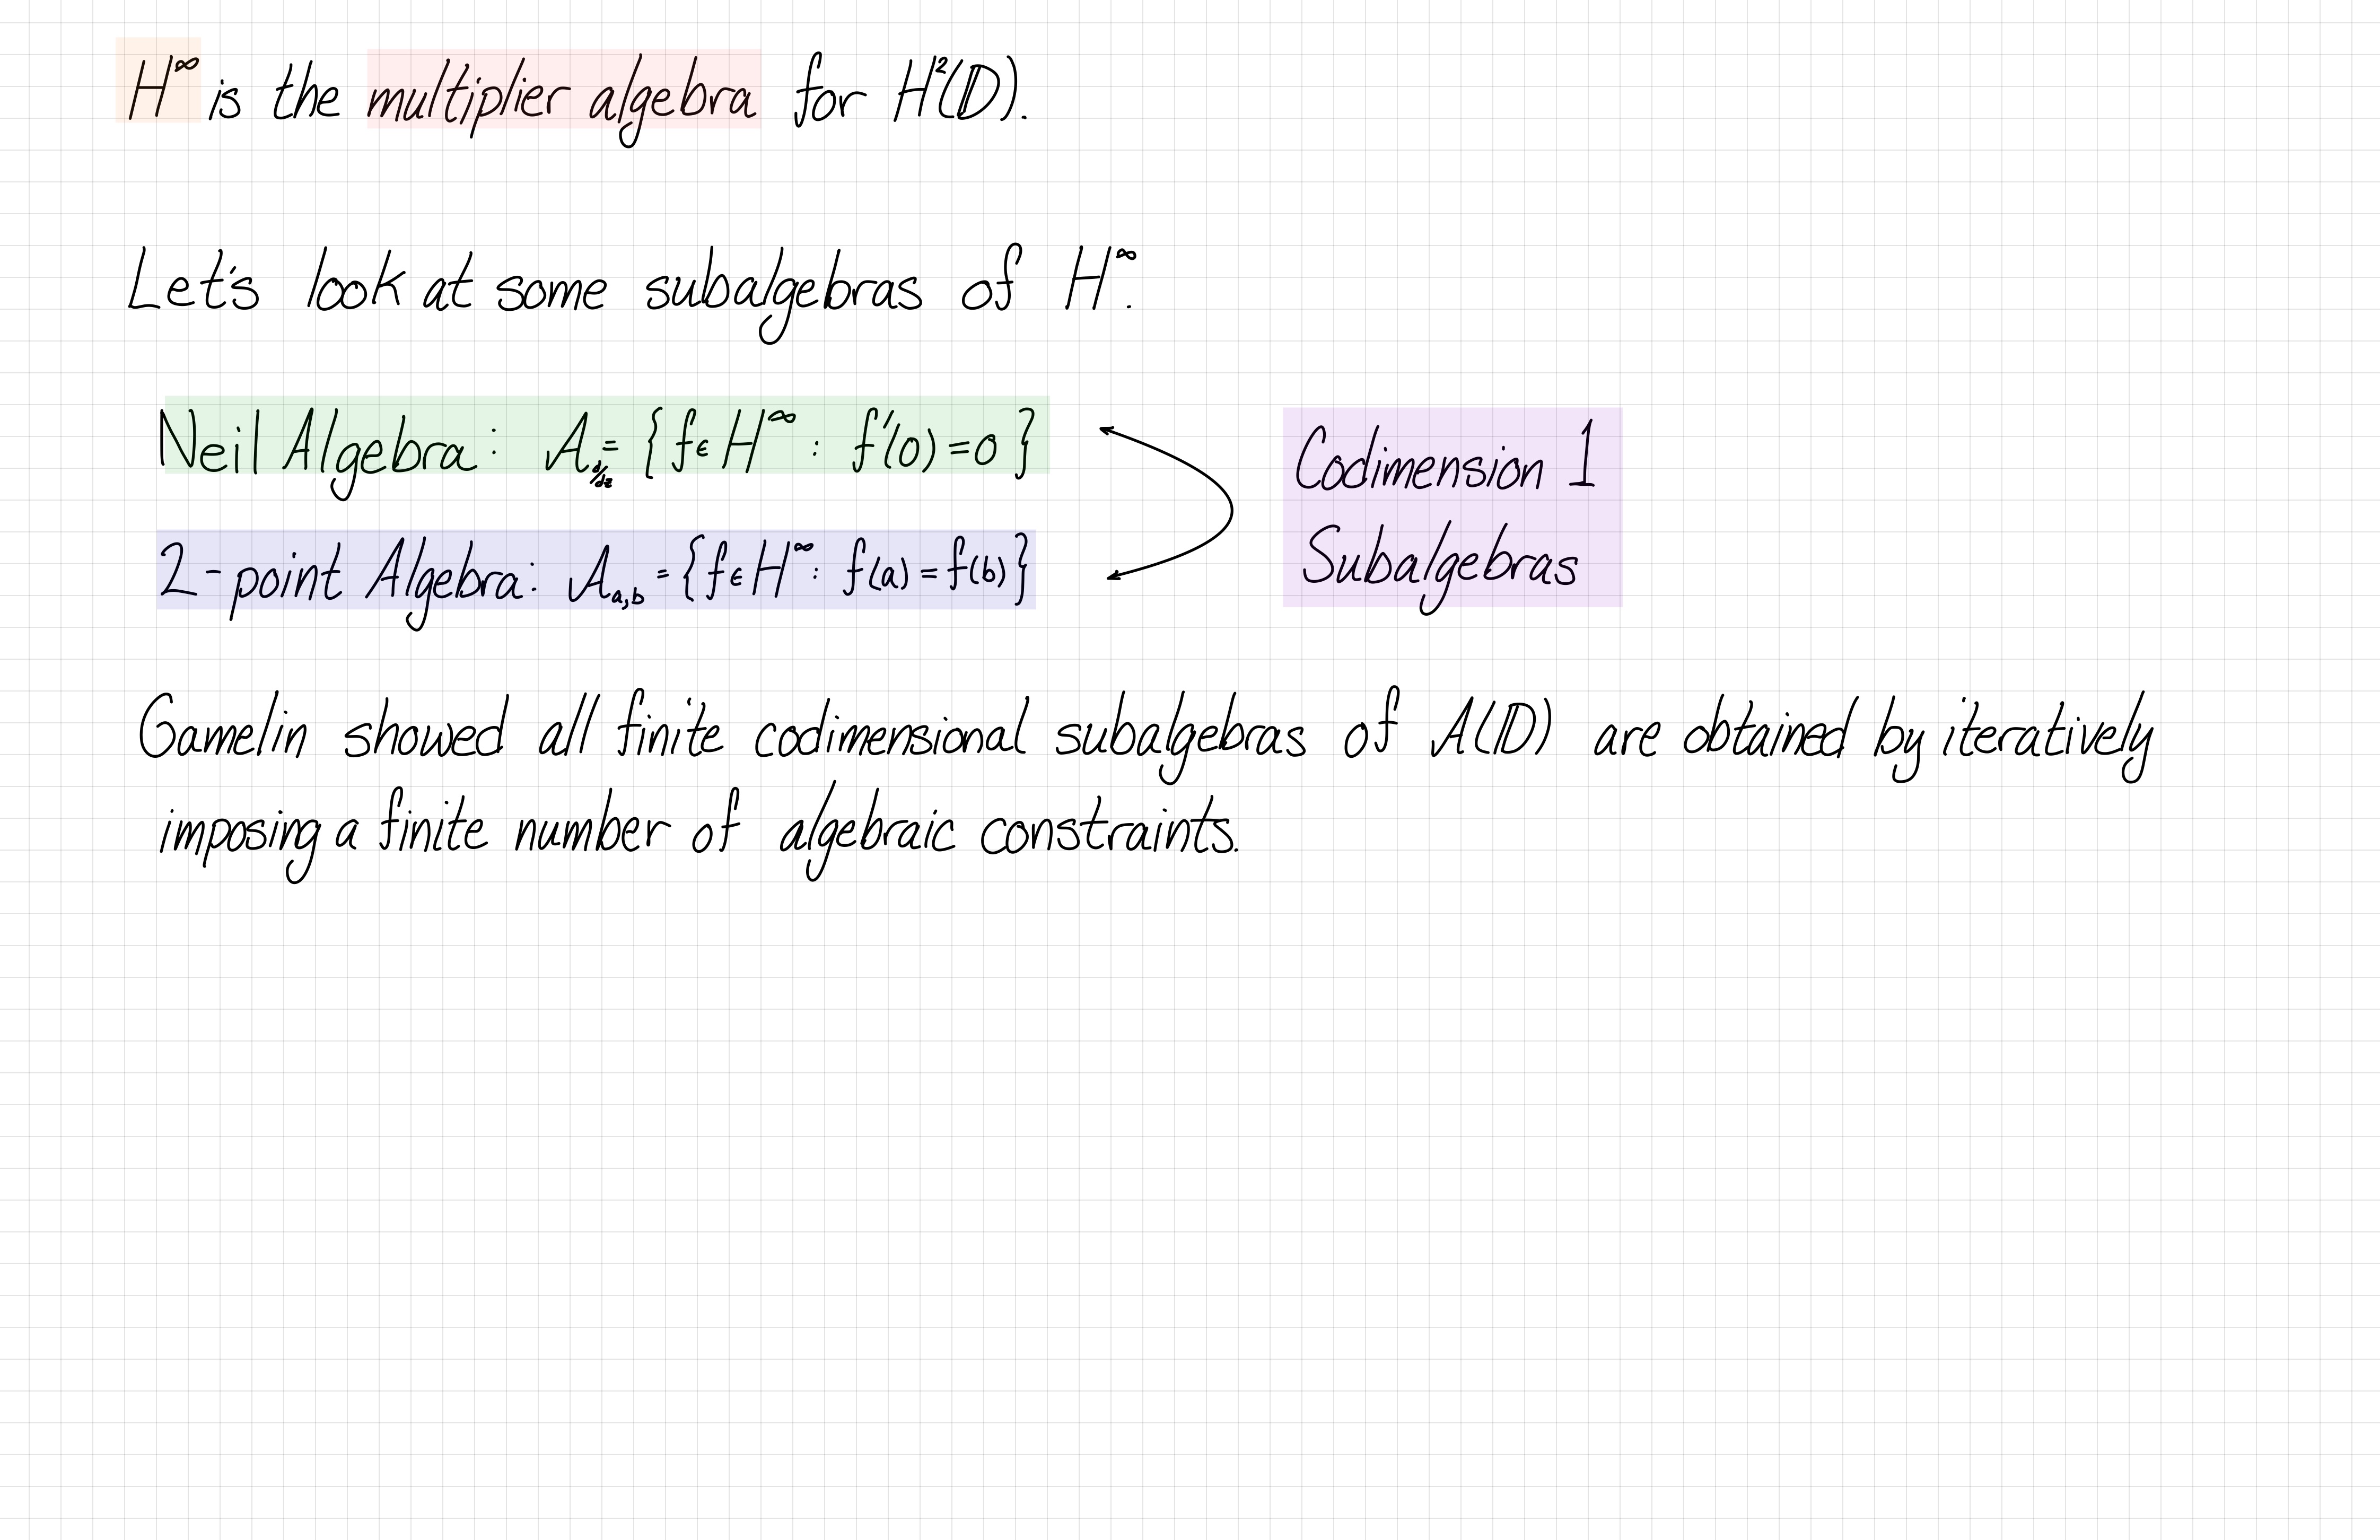 H^∞ is the multiplier algebra for H²(𝔻).
Let's look at some subalgebras of H^∞.
Neil Algebra: A_{d/dz} = {f ∈ H^∞ : f'(0) = 0}
2-point Algebra: A_{a,b} = {f ∈ H^∞ : f(a) = f(b)}
Codimension 1
Subalgebras
Gamelin showed all finite codimensional subalgebras of A(𝔻) are obtained by iteratively
imposing a finite number of algebraic constraints.